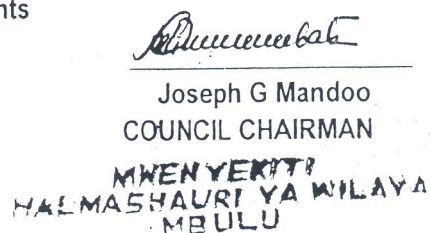 nts
Joseph G Mandoo
COUNCIL CHAIRMAN
MWENYEKITI
HALMASHAURI YA WILAYA
MBULU